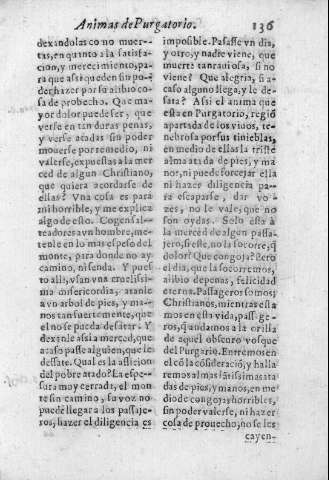 Animas de Purgatorio. 136
dexandolas co no muer-
tas, en quanto a la satisfa-
cion, y merecimiento, pa-
ra que assi queden sin po-
der hazer por su aliuio co-
sa de probecho. Que ma-
yor dolor puede ser, que
verse en tan duras penas,
y verse atadas sin poder
mouerse por remedio, ni
valerse, expuestas a la mer
ced de algun Christiano,
que quiera acordarse de
ellas? Vna cosa es para
mi horrible, y me explica
algo de esto. Cogen sal-
teadores a vn hombre, me-
tenle en lo mas espeso del
monte, para donde no ay
camino, ni senda. Y pues
to alli, vsan vna cruelissi
ma misericordia, atanle
a vn arbol de pies, y ma-
nos tan fuertemente, que
el no se pueda desatar. Y
dexenle assi a merced, que
acaso passe alguien, que le
dessate. Qual es la aflicion
del pobre atado? La espe-
sura muy cerrada, el mon
te sin camino, su voz no
puede llegar a los passaje-
ros, hazer el diligencia es
imposible. Passasse vn dia,
y otro, y nadie viene, que
muerte tan rauiosa, si no
viene? Que alegria, si a-
caso alguno llega, y le de-
sata? Asi el anima que
esta en Purgatorio, regiō
apartada de los viuos, te-
nebrosa por sus tinieblas,
en medio de ellas la triste
alma atada de pies, y ma-
nos, ni puede forcejar ella
ni hazer diligencia pa-
ra escaparse, dar vo-
zes, no le vale, que no
son oydas. Solo está à
la merced de algun passa-
jero, si este, no la socorre, q̄
dolor! Que congoja! Pero
el dia, que la socorremos,
aliuio depenas, felicidad
eterna. Passageros somos;
Christianos, mientras esta
mos en esta vida, passage-
ros, q̄ andamos a la orilla
de aquel obscuro vosque
del Purgario. Entremos en
el cō la cōsideraciō, y halla
remos almas sātissimas ata
das de pies, y manos, en me
dio de congojas horribles,
sin poder valerse, ni hazer
cosa de prouecho, no se les
cayen-